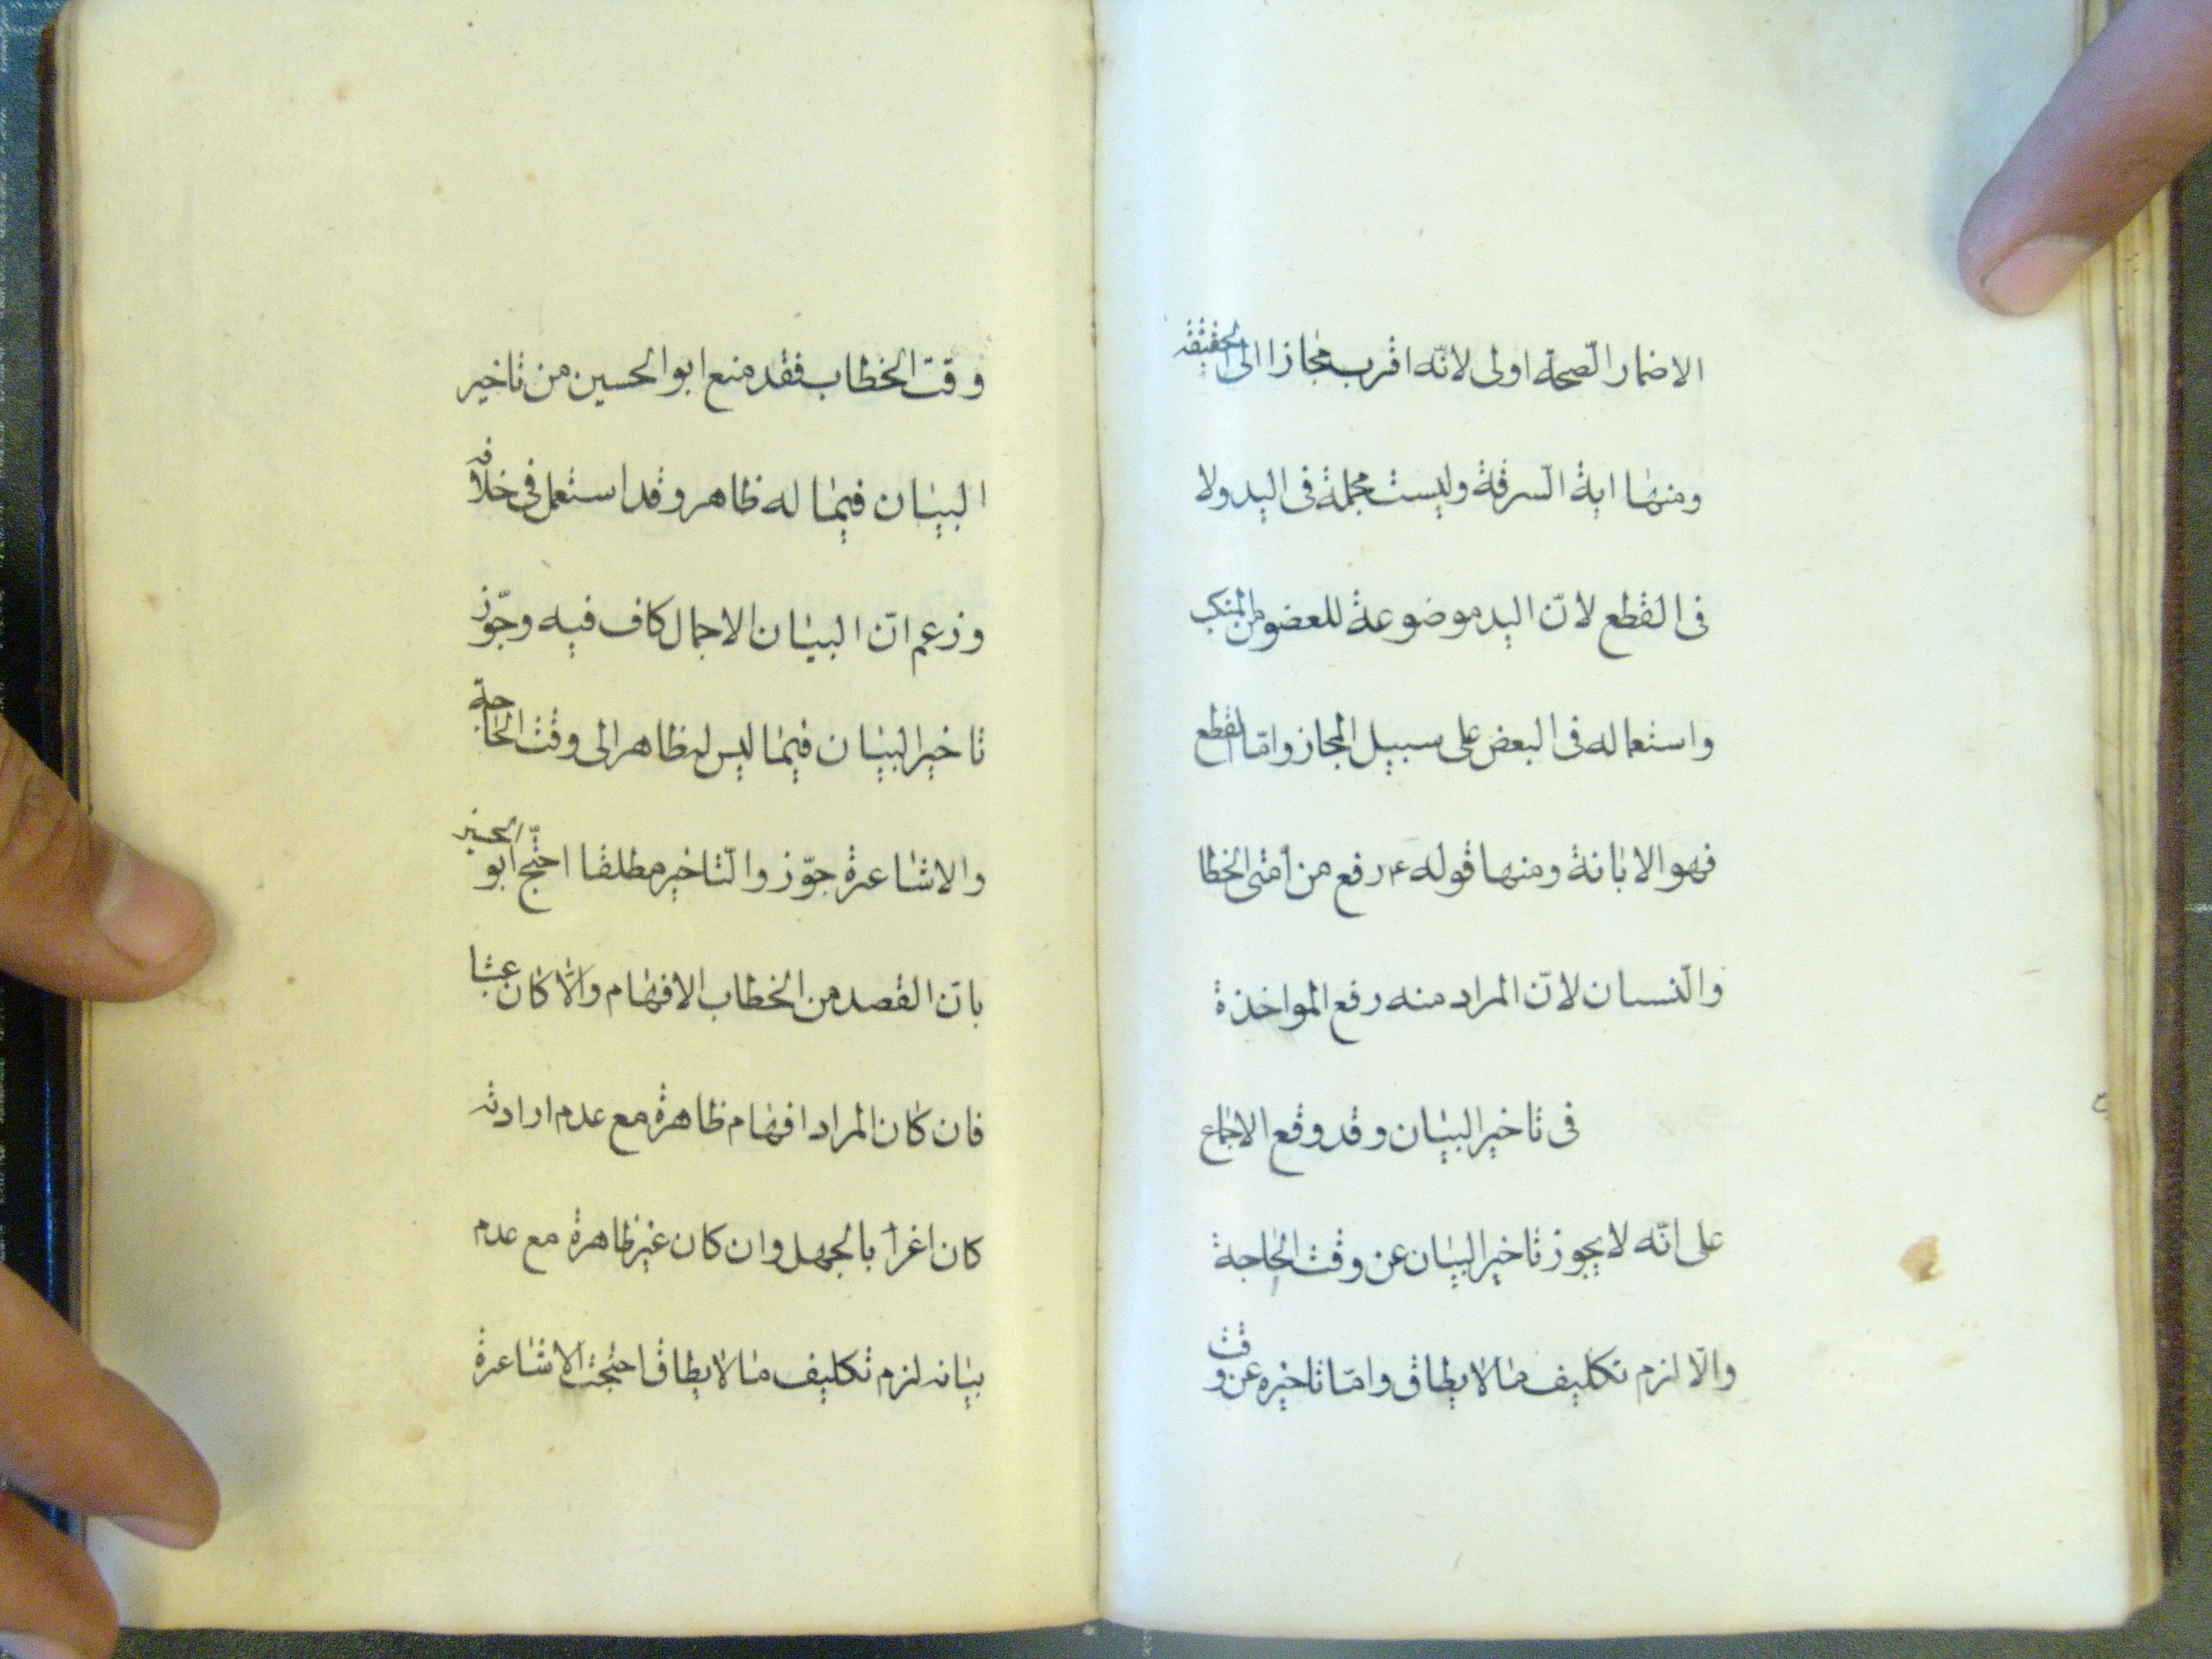 الاضمار الصحة اولى لانّه اقرب مجازا الى الحقيقة
ومنها اية السّرقة وليست مجملة فى اليد ولا
فى القطع لانّ اليد موضوعة للعضو من المنكب
واستعماله فى البعض على سبيل المجاز وامّا القطع
فهو الابانة ومنها قوله ع رفع من أمتى الخطا
والنّسيان لانّ المراد منه رفع المواخذة
فى تاخير البيان وقد وقع الاجماع
على انّه لا يجوز تاخير البيان عن وقت الحاجة
والّا لزم تكليف ما لا يطاق وامّا تاخيره عن وقت
وقت الخطاب فقد منع ابو الحسين من تاخير
البيان فيما له ظاهر وقد استعمل فى خلافه
وزعم انّ البيان الاجمال كاف فيه وجوّز
تاخير البيان فيما ليس له ظاهر الى وقت الحاجة
والاشاعرة جوّزوا التّاخير مطلقا احتجّ ابو الحسين
بانّ القصد من الخطاب الافهام والّا كان عبثا
فان كان المراد افهام ظاهرة مع عدم ارادته
كان اغرأ بالجهل وان كان غير ظاهرة مع عدم
بيانه لزم تكليف ما لا يطاق احتجت الاشاعرة